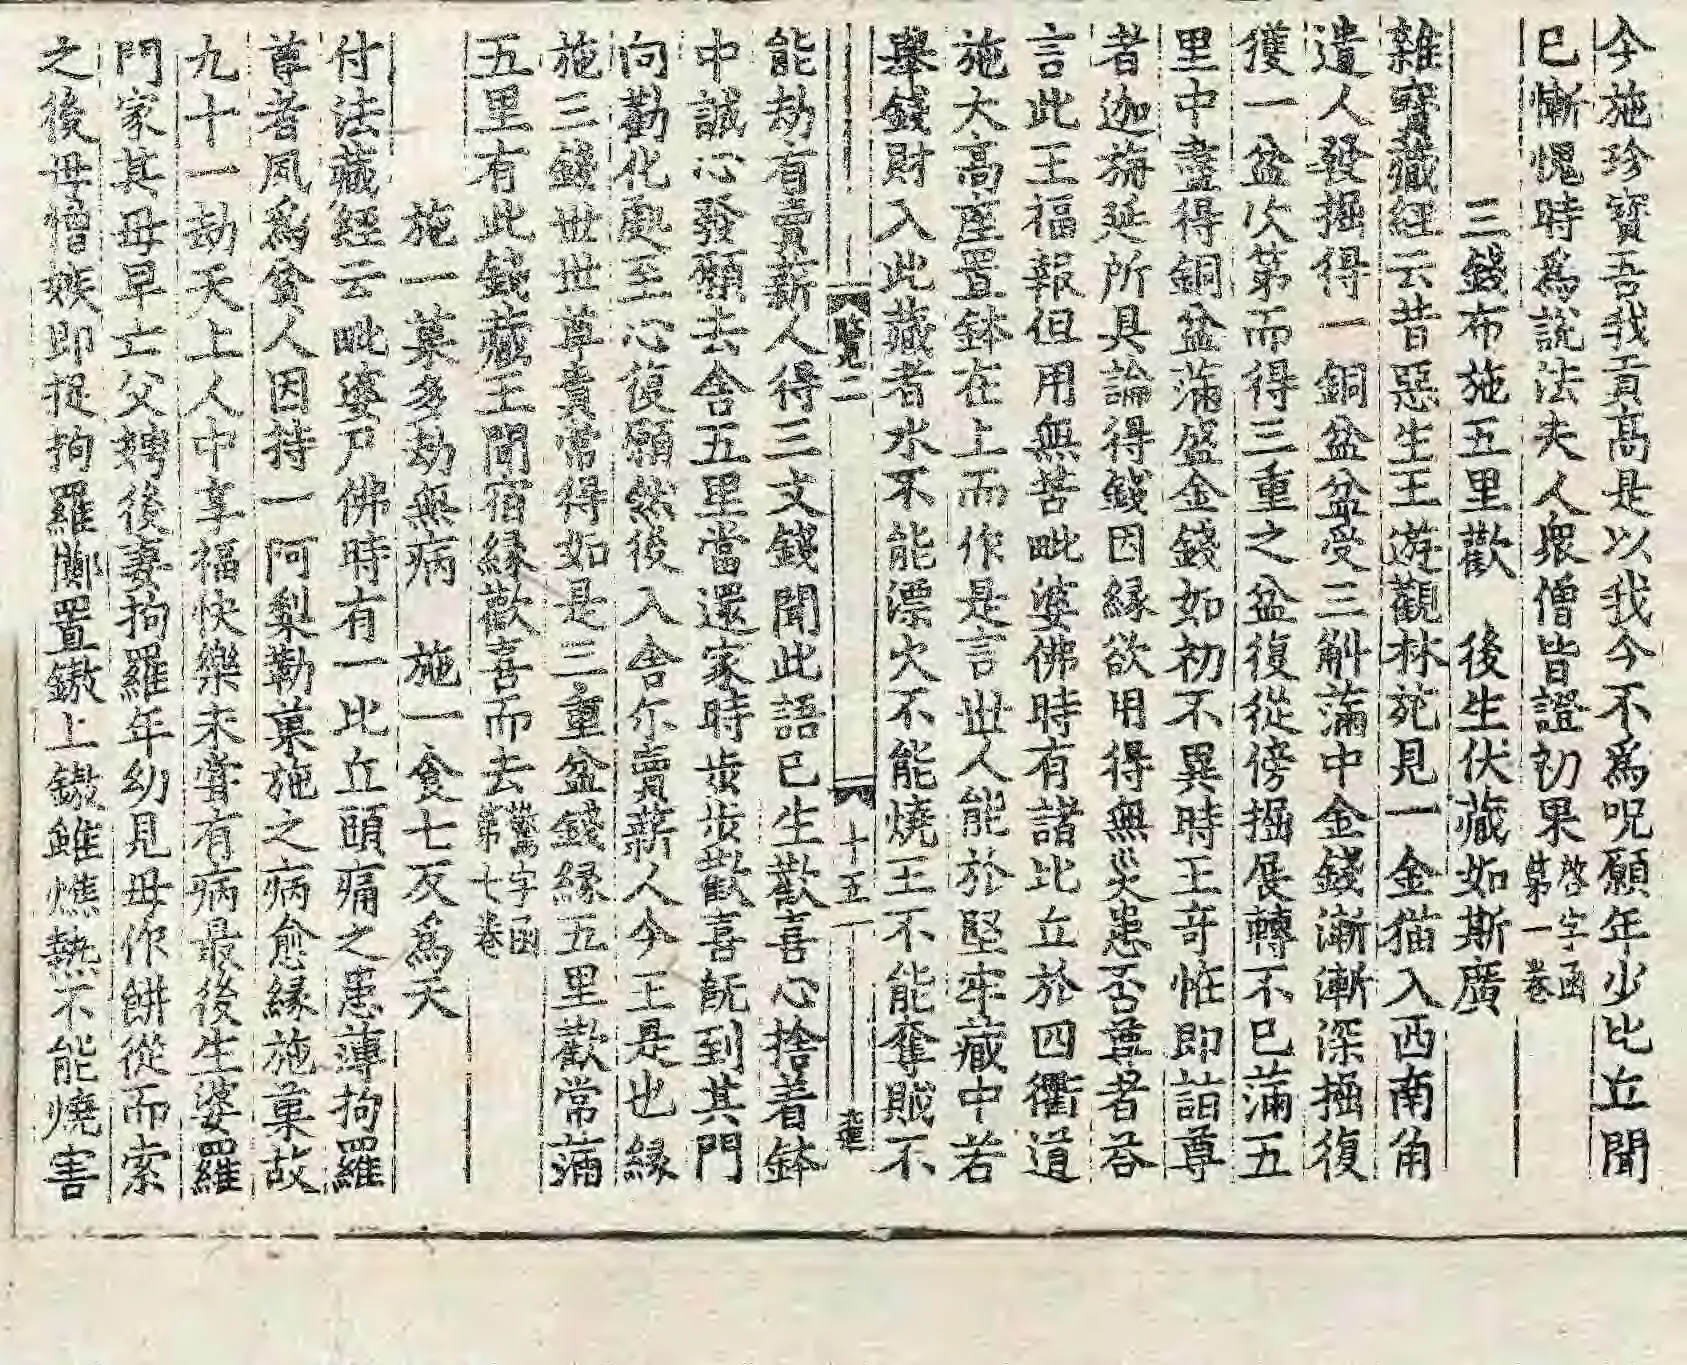 今施珍寶吾我貢高是以我今不爲呪願年少比丘聞
已慚愧時爲說法夫人衆僧皆證初果啓字函第一卷
三錢布施五里歡　後生伏藏如斯廣
雜寶藏經云昔惡生王遊觀林苑見一金猫入西南角
遣人發掘得一銅盆盆受三斛滿中金錢漸漸深掘復
獲一盆次第而得三重之盆復從傍掘展轉不已滿五
里中盡得銅盆滿盛金錢如初不異時王奇恠即詣尊
者迦旃延所具論得錢因緣欲用得無災患否尊者荅
言此王福報但用無苦毗婆佛時有諸比丘於四衢道
施大高座置鉢在上而作是言世人能於堅牢藏中若
舉錢財入此藏者水不能漂火不能燒王不能奪賊不
覽二　十五
能劫有賣薪人得三文錢聞此語已生歡喜心捨着鉢
中誠心發願去舍五里當還家時步步歡喜旣到其門
向勸化處至心復願然後入舍尓賣薪人今王是也緣
施三錢世世尊貴常得如是三重盆錢緣五里歡常滿
五里有此錢藏王聞宿緣歡喜而去驚字函第七卷
施一菓多劫無病　施一食七反爲天
付法藏經云毗婆尸佛時有一比丘頭痛之患薄拘羅
尊者夙爲貧人因持一阿梨勒菓施之病愈緣施菓故
九十一劫天上人中享福快樂未甞有病最後生婆羅
門家其母早亡父娉後妻拘羅年幼見母作餅從而索
之後母憎嫉即捉拘羅擲置鏊上鏊雖燋熱不能燒害